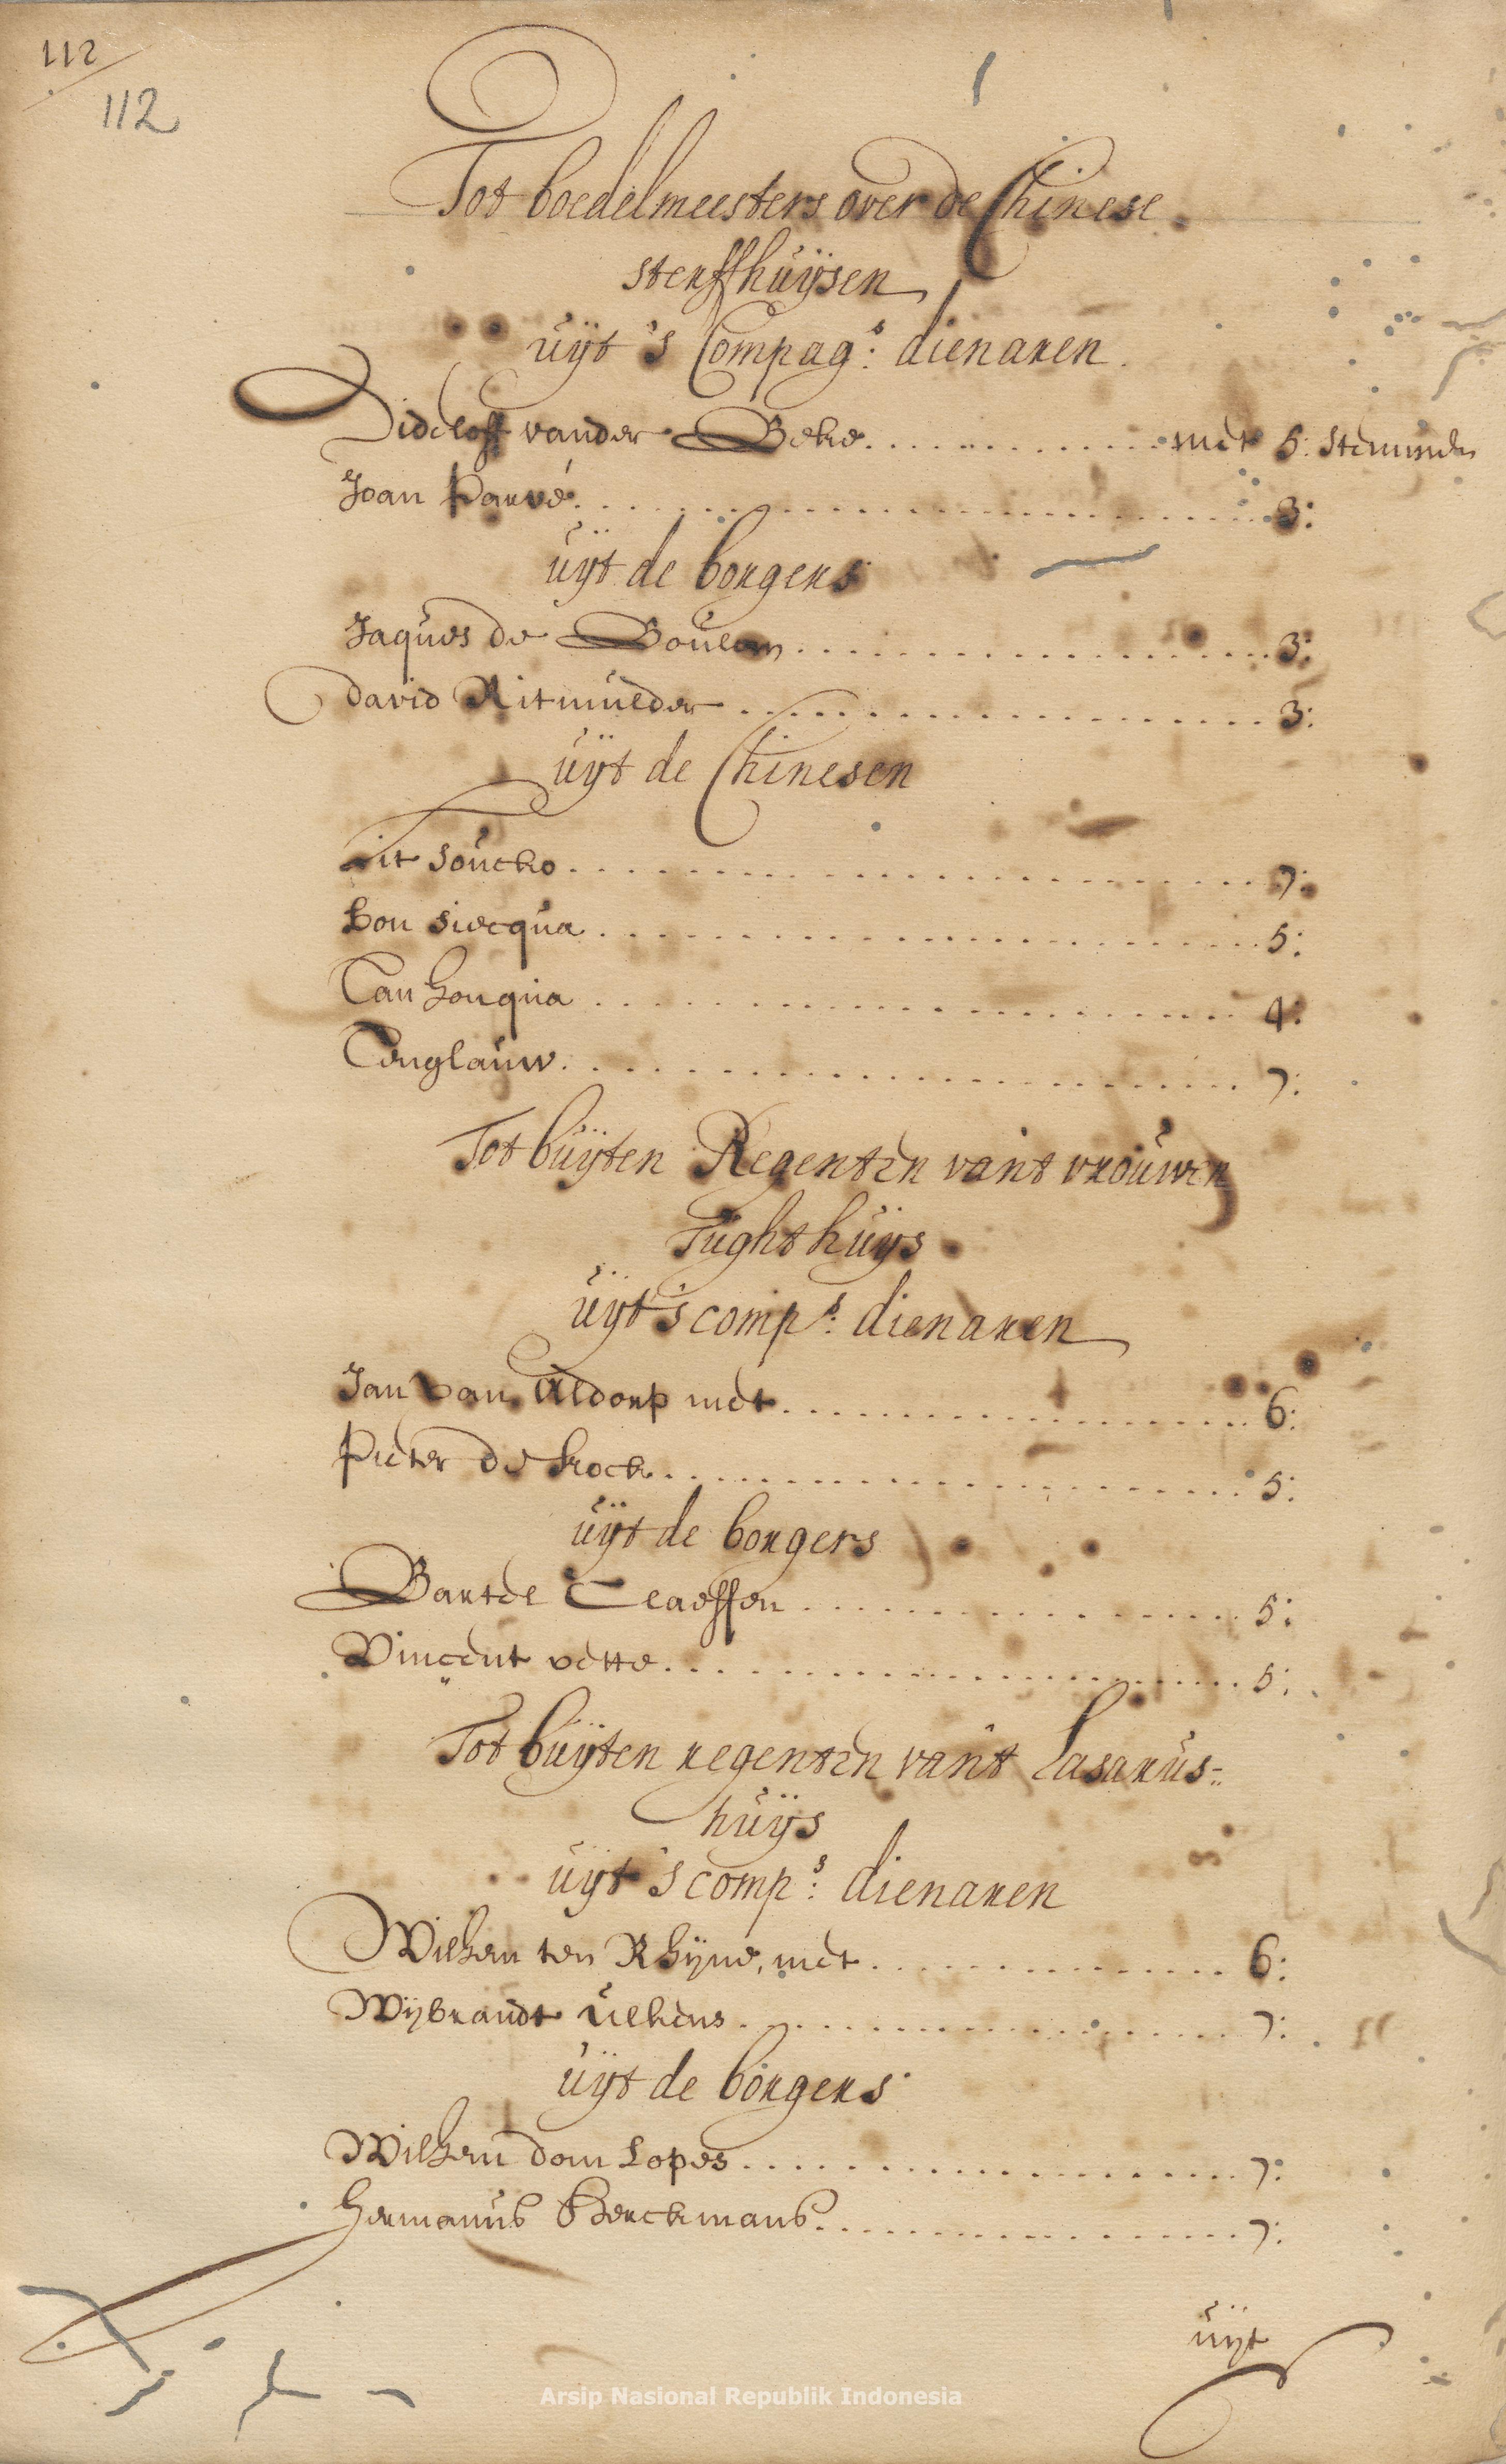 112
112
Tot boedelmeesters over de Chinese
sterfhuÿsen
uÿt 's Compag:s dienaren.
Didloff vander Beke . . . . . . . . . . met 5: stemmen
Joan Parvé . . . . . . . . . . 3:
uÿt de borgers
Jaques de Boulan . . . . . . . . . . 3:
david Ritmulder . . . . . . . . . . 3:
uÿt de Chinesen
Lit Soucko . . . . . . . . . . 7:
Bon Siecqua . . . . . . . . . . 5:
Tan honqua . . . . . . . . . . 4:
Conglauw . . . . . . . . . . 7:
Tot buÿten Regenten vant vrouwen
Tughthuÿs
uÿt 's comp:s dienaren
Jan van Aldorp met . . . . . . . . . . 6:
Pieter de . . . . . . . . . . 5:
uÿt de borgers
Bartel Claessen . . . . . . . . . . 5:
Vincent vette . . . . . . . . . . 5:
Tot buÿten regenten vant Lasarus=
huÿs
uÿt 's comp:s dienaren
Willem ten Rhijne, met . . . . . . . . . . 6:
Wijbrandt Ulkens . . . . . . . . . . 7:
uÿt de borgers
Willem dom Lopes . . . . . . . . . . 7:
Hermanus Berckmans . . . . . . . . . . 7:
uÿt
Arsip Nasional Republik Indonesia